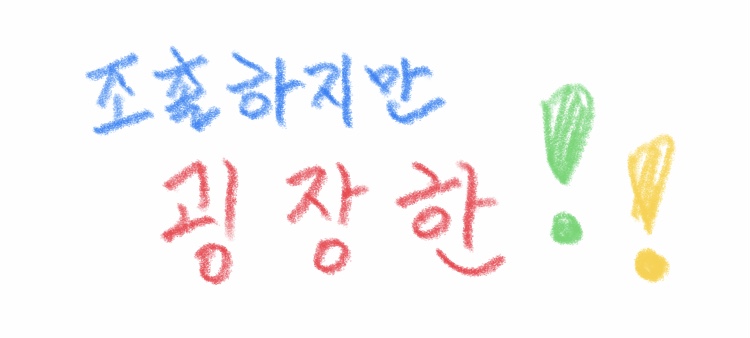 조촐하지만
굉장한!!